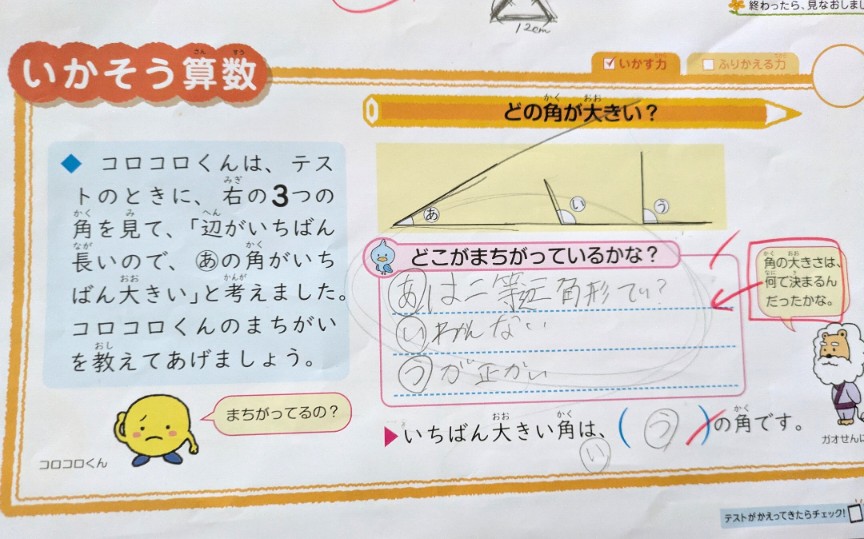 12cm
終わったら、見なおしまし
いかそう算数
いかす力
ふりかえる力
どの角が大きい？
◆ コロコロくんは、テス
トのときに、右の3つの
角を見て、「辺がいちばん
長いので、あの角がいち
ばん大きい」と考えました。
コロコロくんのまちがい
を教えてあげましょう。
あ
い
う
どこがまちがっているかな？
あは二等辺三角形で？
いわかんない
うが正かい
角の大きさは、
何で決まるん
だったかな。
まちがってるの？
コロコロくん
▶いちばん大きい角は、（ う ）の角です。
い
ガオせんに
テストがかえってきたらチェック！